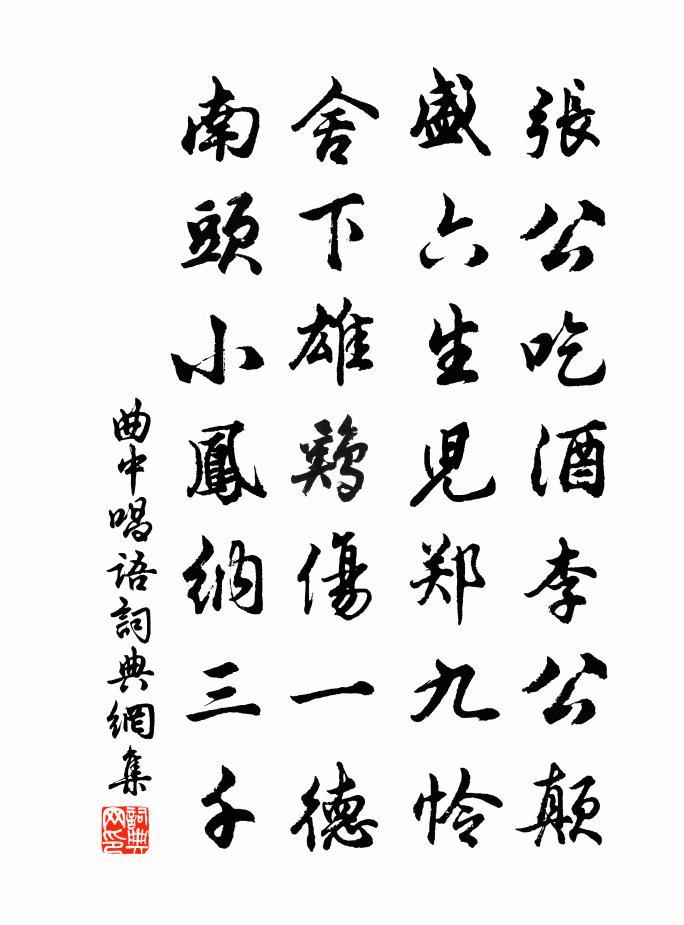 張公吃酒李公顛
盛六生児郑九怜
舍下雄鷄傷一德
南頭小鳳納三千
曲中唱語詞典網集
詞典网印